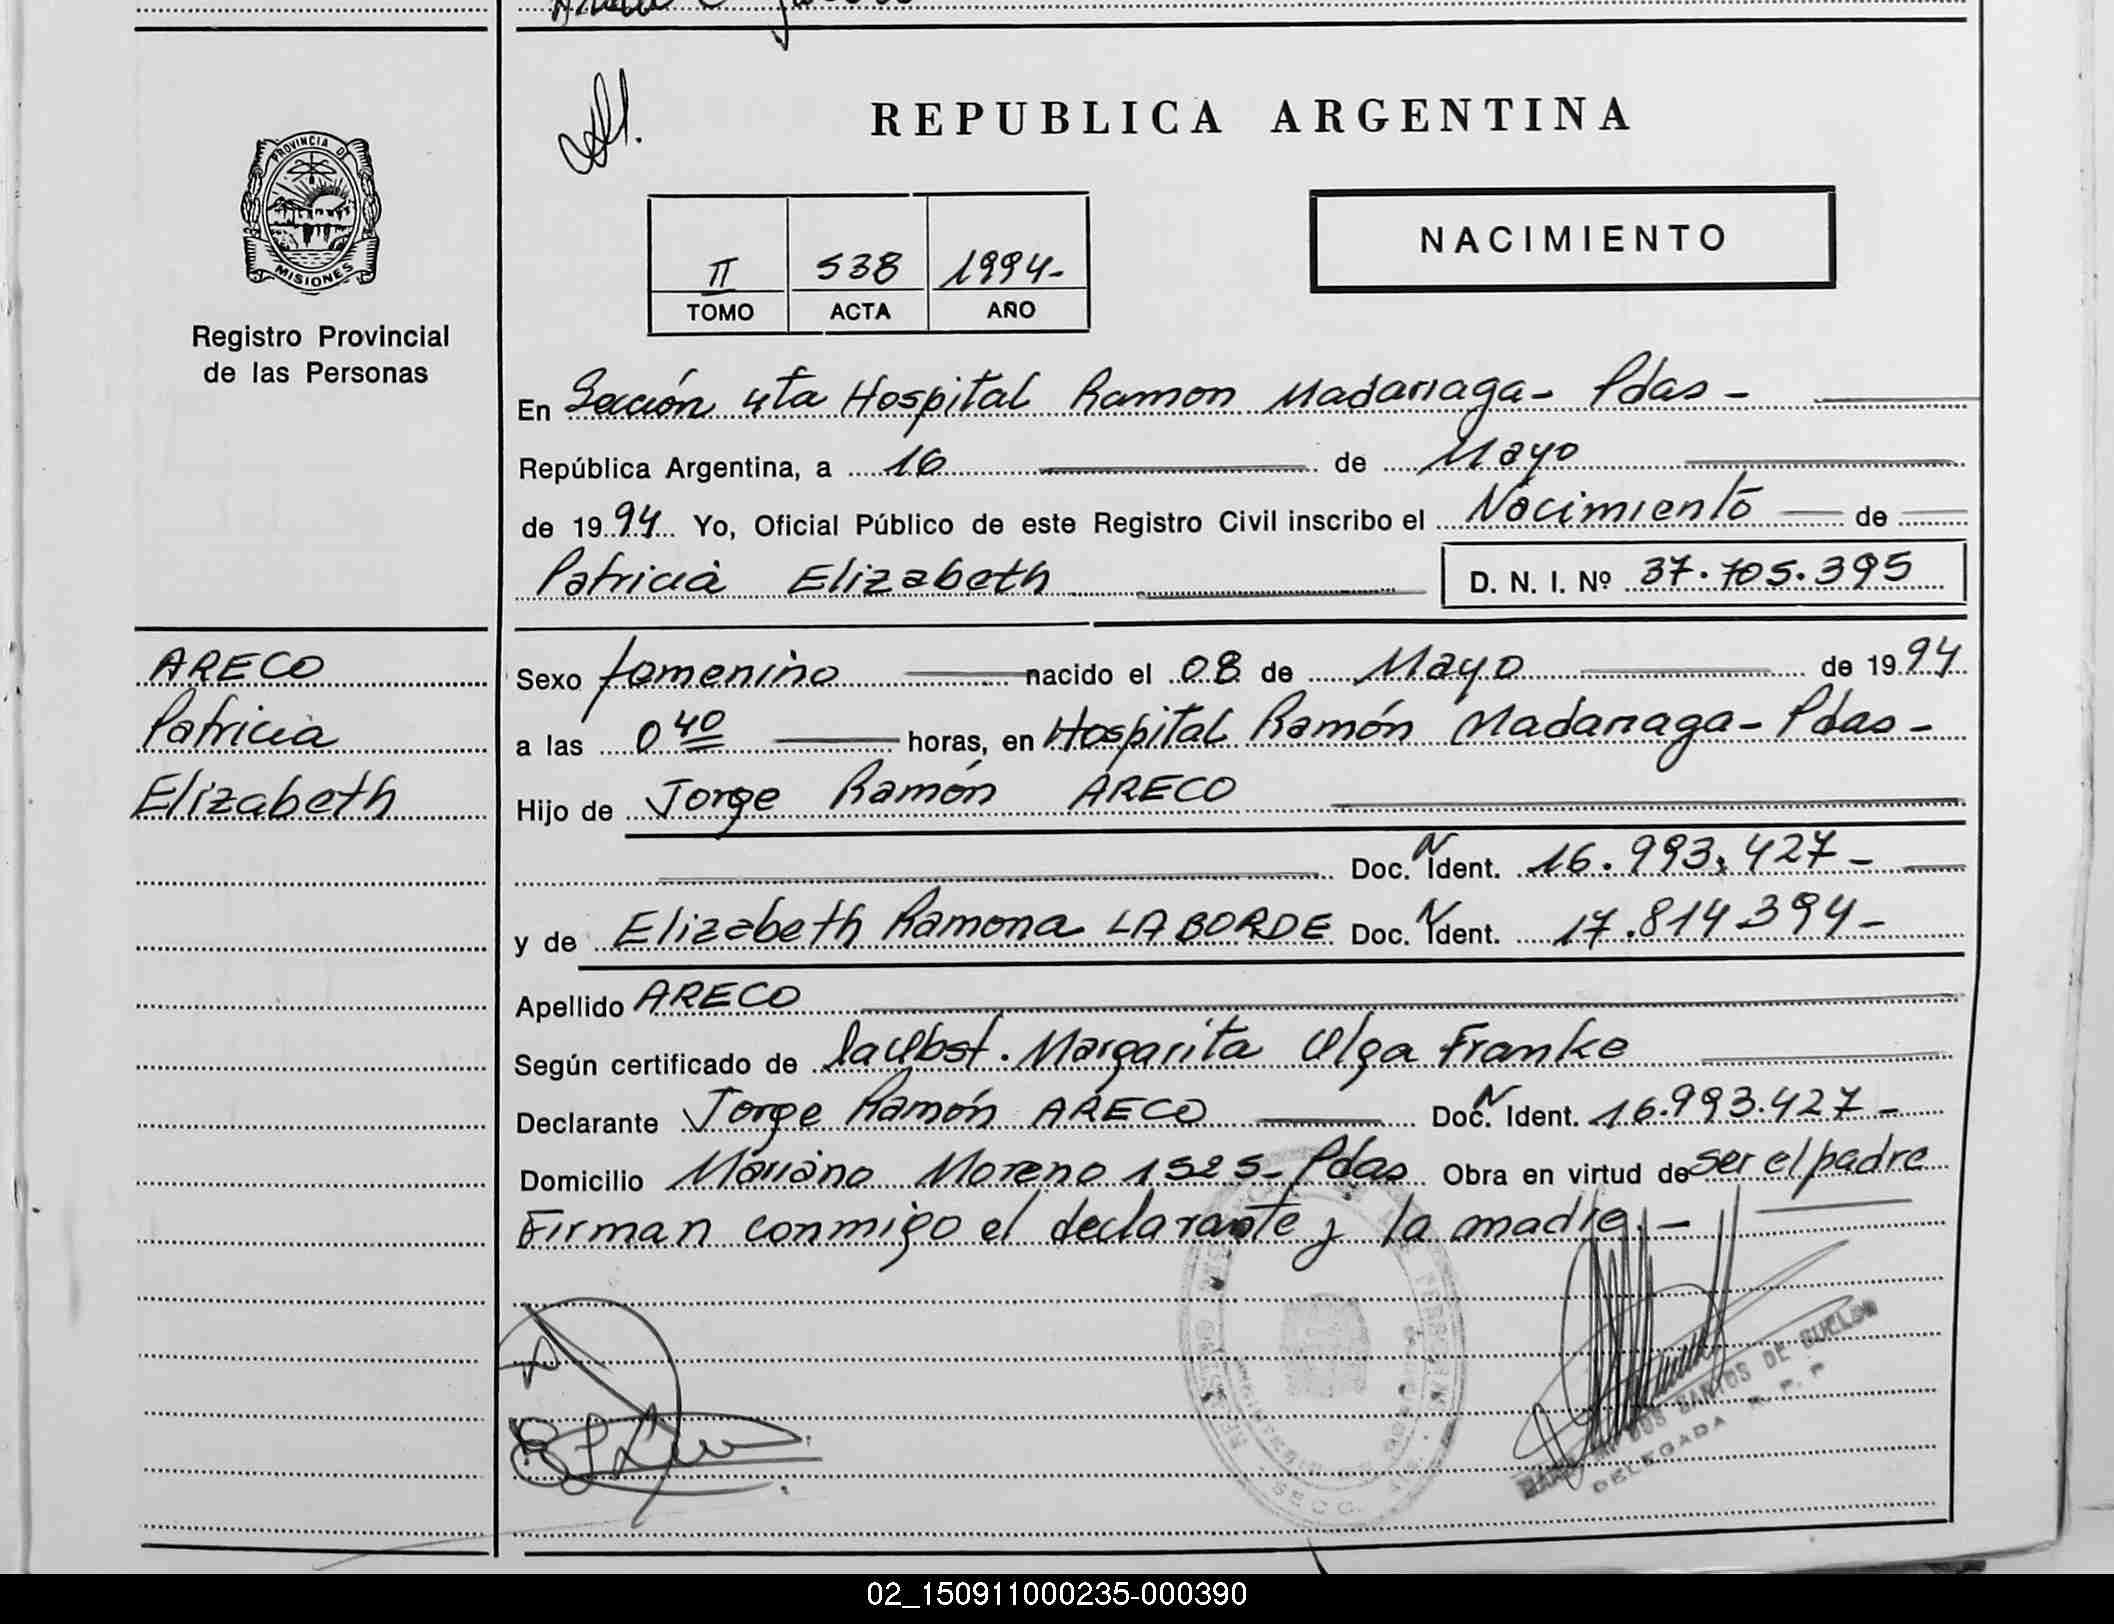 PROVINCIA DE
MISIONES
Registro Provincial
de las Personas
REPUBLICA ARGENTINA
II 538 1994-
TOMO ACTA AÑO
NACIMIENTO
En Sección 4ta Hospital Ramon Madariaga- Pdas-
República Argentina, a 16 de Mayo
de 1994 Yo, Oficial Público de este Registro Civil inscribo el Nacimiento de
Patricia Elizabeth D. N. I. Nº 37.705.395
ARECO
Patricia
Elizabeth
Sexo femenino nacido el 08 de Mayo de 1994
a las 0 40 horas, en Hospital Ramón Madariaga- Pdas-
Hijo de Jorge Ramón ARECO
Doc. N Ident. 16.993.427-
y de Elizabeth Ramona LABORDE Doc. N Ident. 17.814394-
Apellido ARECO
Según certificado de la Obst. Margarita Olga Franke
Declarante Jorge Ramón ARECO Doc. N Ident. 16.993.427-
Domicilio Mariano Moreno 1525- Pdas Obra en virtud de ser el padre
Firman conmigo el declarante y la madre.-
DOS SANTOS DE
DELEGADA R. P. P
SECC.
02_150911000235-000390